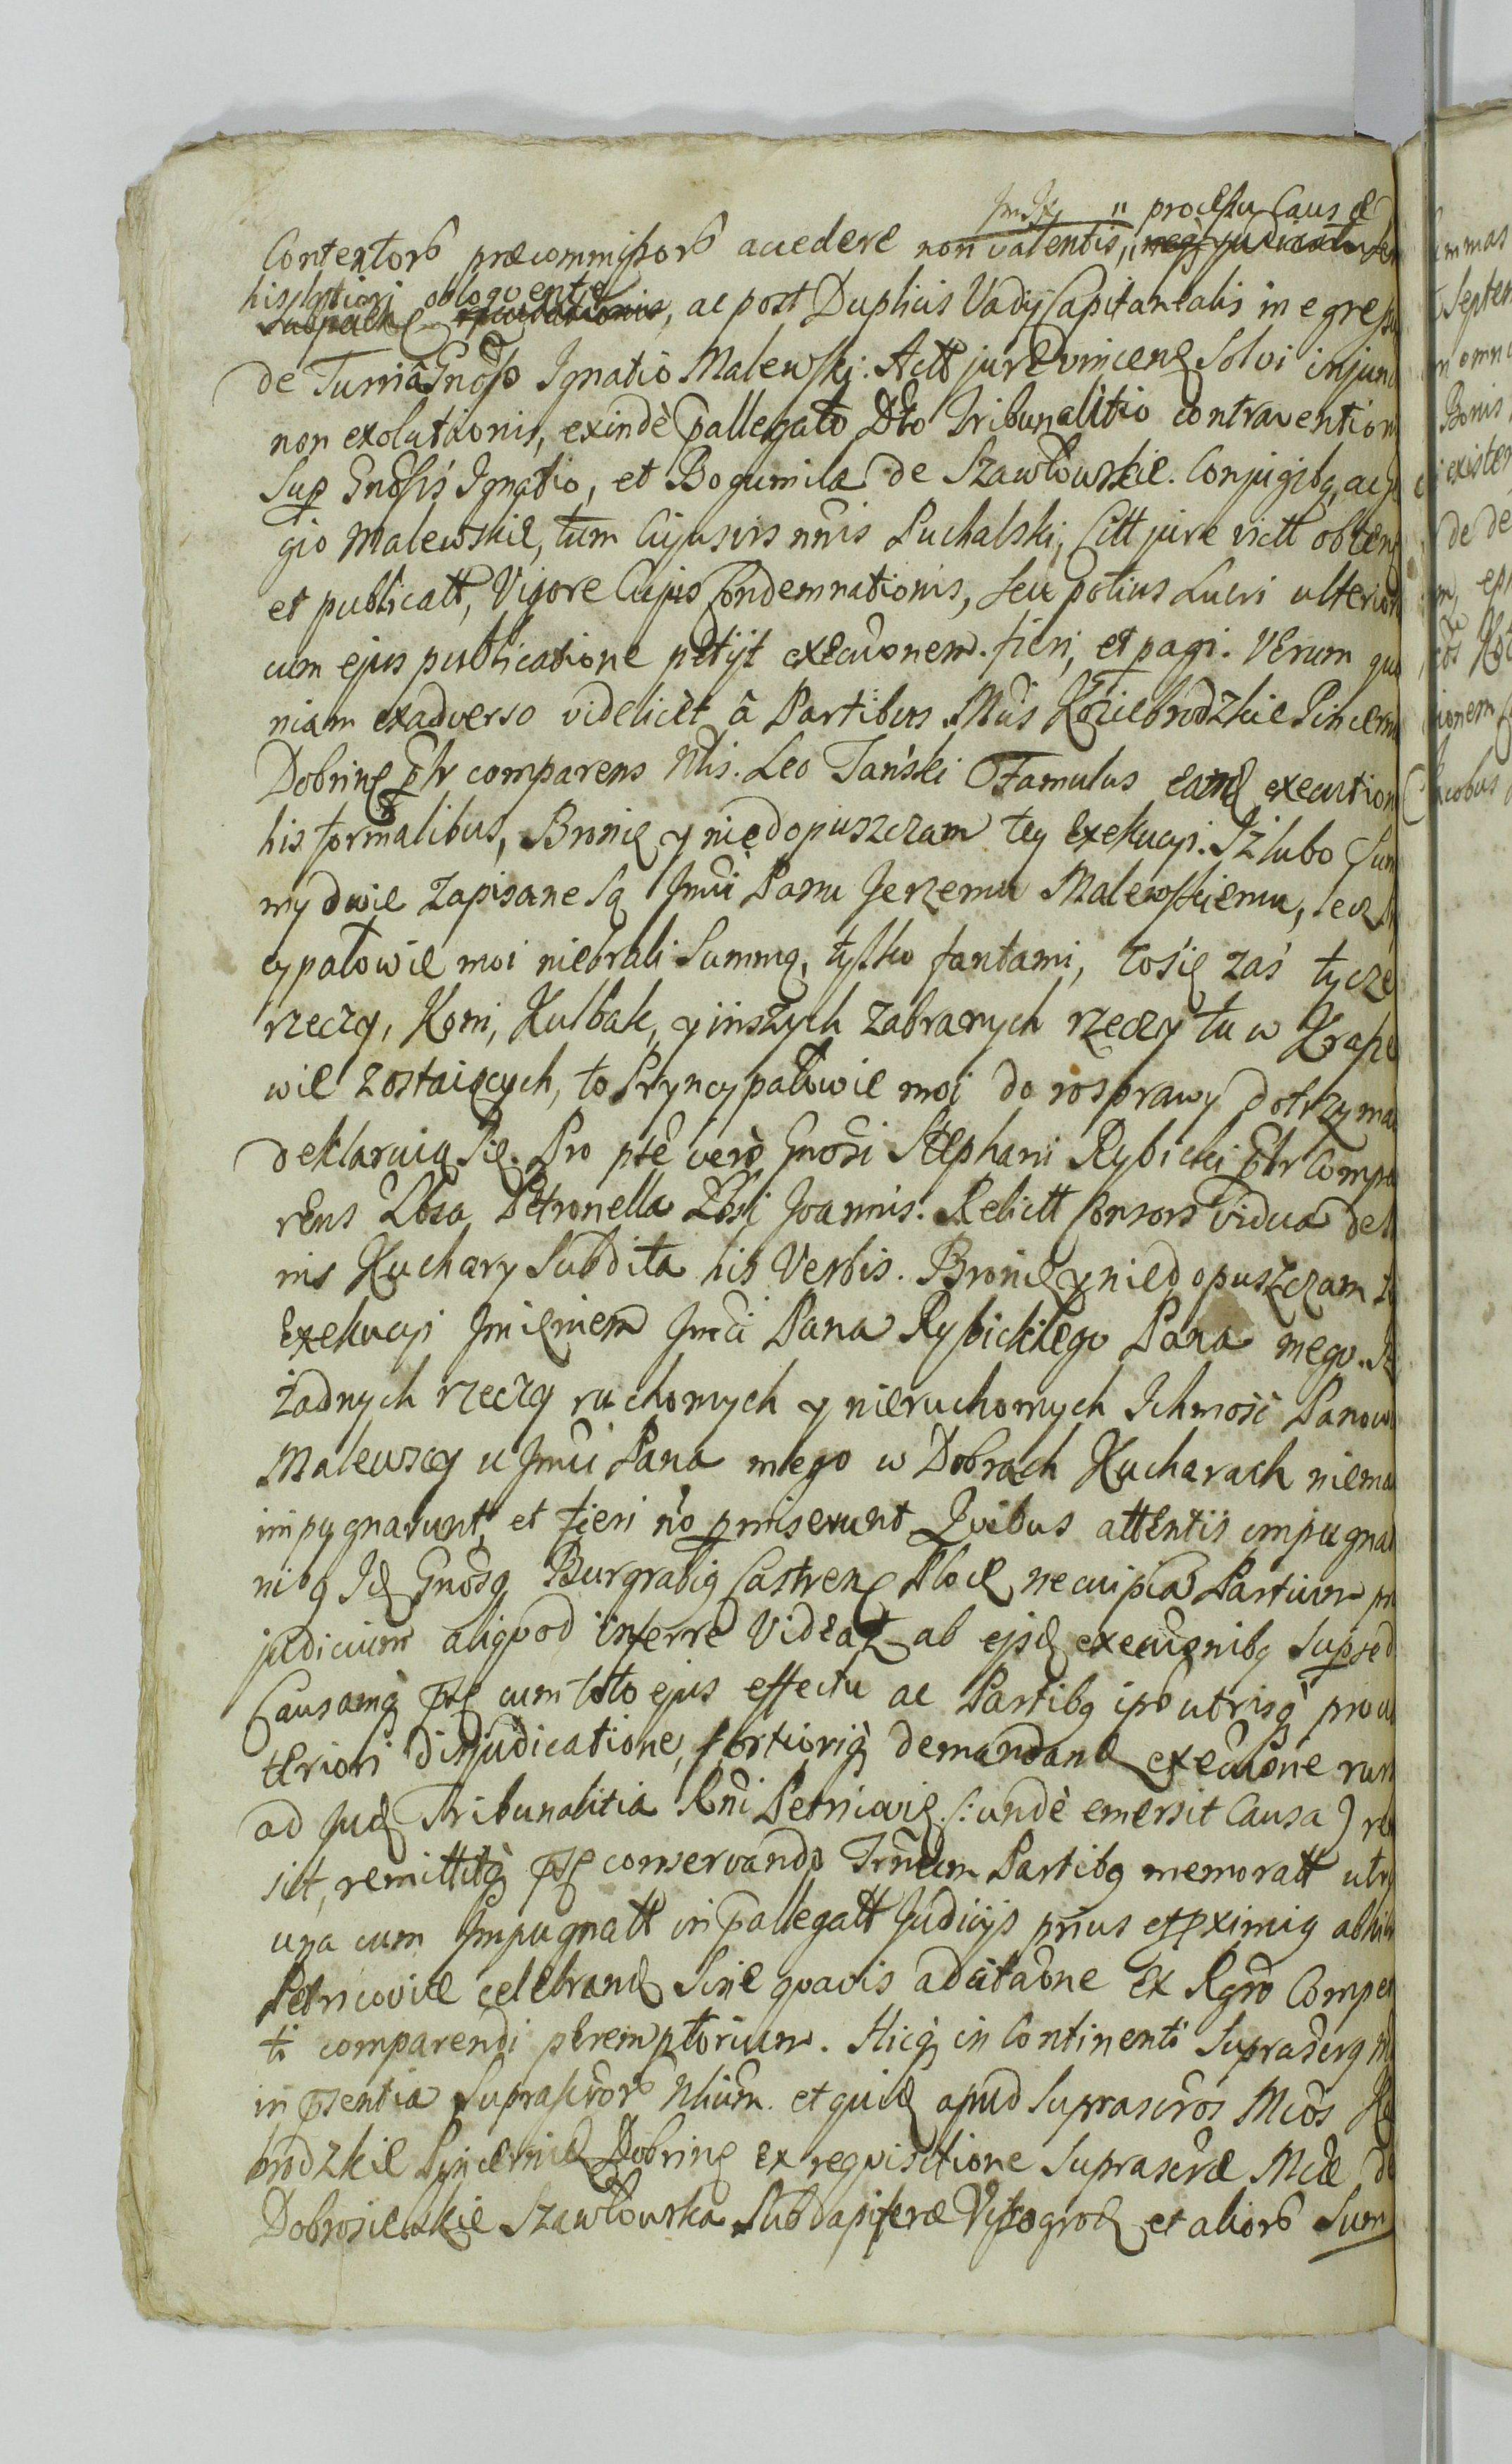 processu Causæ
Contentorb præcommissorb accedere non valentis,
his latiori obloquente, ac post Duplicis Vadij Capitanealis in egressu
de Turri a Gnoso Ignatio Malewski. Actt jure vincen Solvi injun
non exolutionis, exindè pallegato Dto Tribunalitio contravention
Sup Gnosis Ignatio, et Bogumila de Szawłowskie. Conjugibq, ac
gio Malewskie, tum Cujusvis nnis Puchalski, Citt jure victt obten
et publicatt, Vigore Cujus Condemnationis, seu potius Lucri ulterior
cum ejus publicatione petijt execuonem. fieri, et pagi. Verum quo
niam exadverso videlicèt â Partibus Mcis Koziebrodzkie Pincern
Dobrin Pltr comparens Nlis. Leo Tański Famulus eand execution
his formalibus, Bronię y niedopuszczam tey Exekucyi. Iż lubo Sum
my dwie zapisane są Jmći Panu Jerzemu Malewskiemu, lecz
cypałowie moi niebrali Summą, tylko fantami, cosię zaś tycze
rzeczy, Koni, Kulbak, y inszych zabranych rzeczy tu w Krape
wie zostaiących, to Pryncypałowie moi do rosprawy dotrzyma
deklaruią się. Pro pte verò Gnosi Stephani Rybicki Pltr Compa
rens Lbsa Petronella Lbsi Joannis. Relictt Consors vidua de
nis Kuchary Subdita his Verbis. Bronię y niedopuszczam t
Exekucyi Imieniem Jmći Pana Rybickiego Pana mego. Iż
żadnych rzeczy ruchomych y nieruchomych Ichmość Panow
Malewscy u Jmći Pana mego w Dobrach Kucharach niema
impugnarunt, et fieri no pmiserunt Quibus attentis impugnao
nibq Id Gnosq Burgrabiq Castren Ploc ne cuipia Partium præ
judicium aliquod inferre Videatz ab ejsd execuonibq Supsed
Causamq pst cum toto ejus effectu ac Partibq ipo utrisq pro ul
teriori disjudicatione, fortiorig demandand execuone rur
ad Jud Tribunalitia Rni Petricovie (: undè emersit Causa) re
sit, remittitq pst conservando Trnum Partibq memoratt utris
una cum Impugnatt in pallegatt Judicijs prius et pximiq abhin
Petricoviæ celebrand Sine quavis adcitaone Ex Rgro Compe
ti comparendi peremptorium. Hicq in Continenti Suprascrq
in psentia Suprascrorb Nlium. et quid apud Suprascros Mcos Ko
brodzkie Pincernid Dobrin ex requisitione Suprascræ Mcæ de
Dobrosielskie Szawłowska Subdapiferæ Vysogrod et aliorb Sum